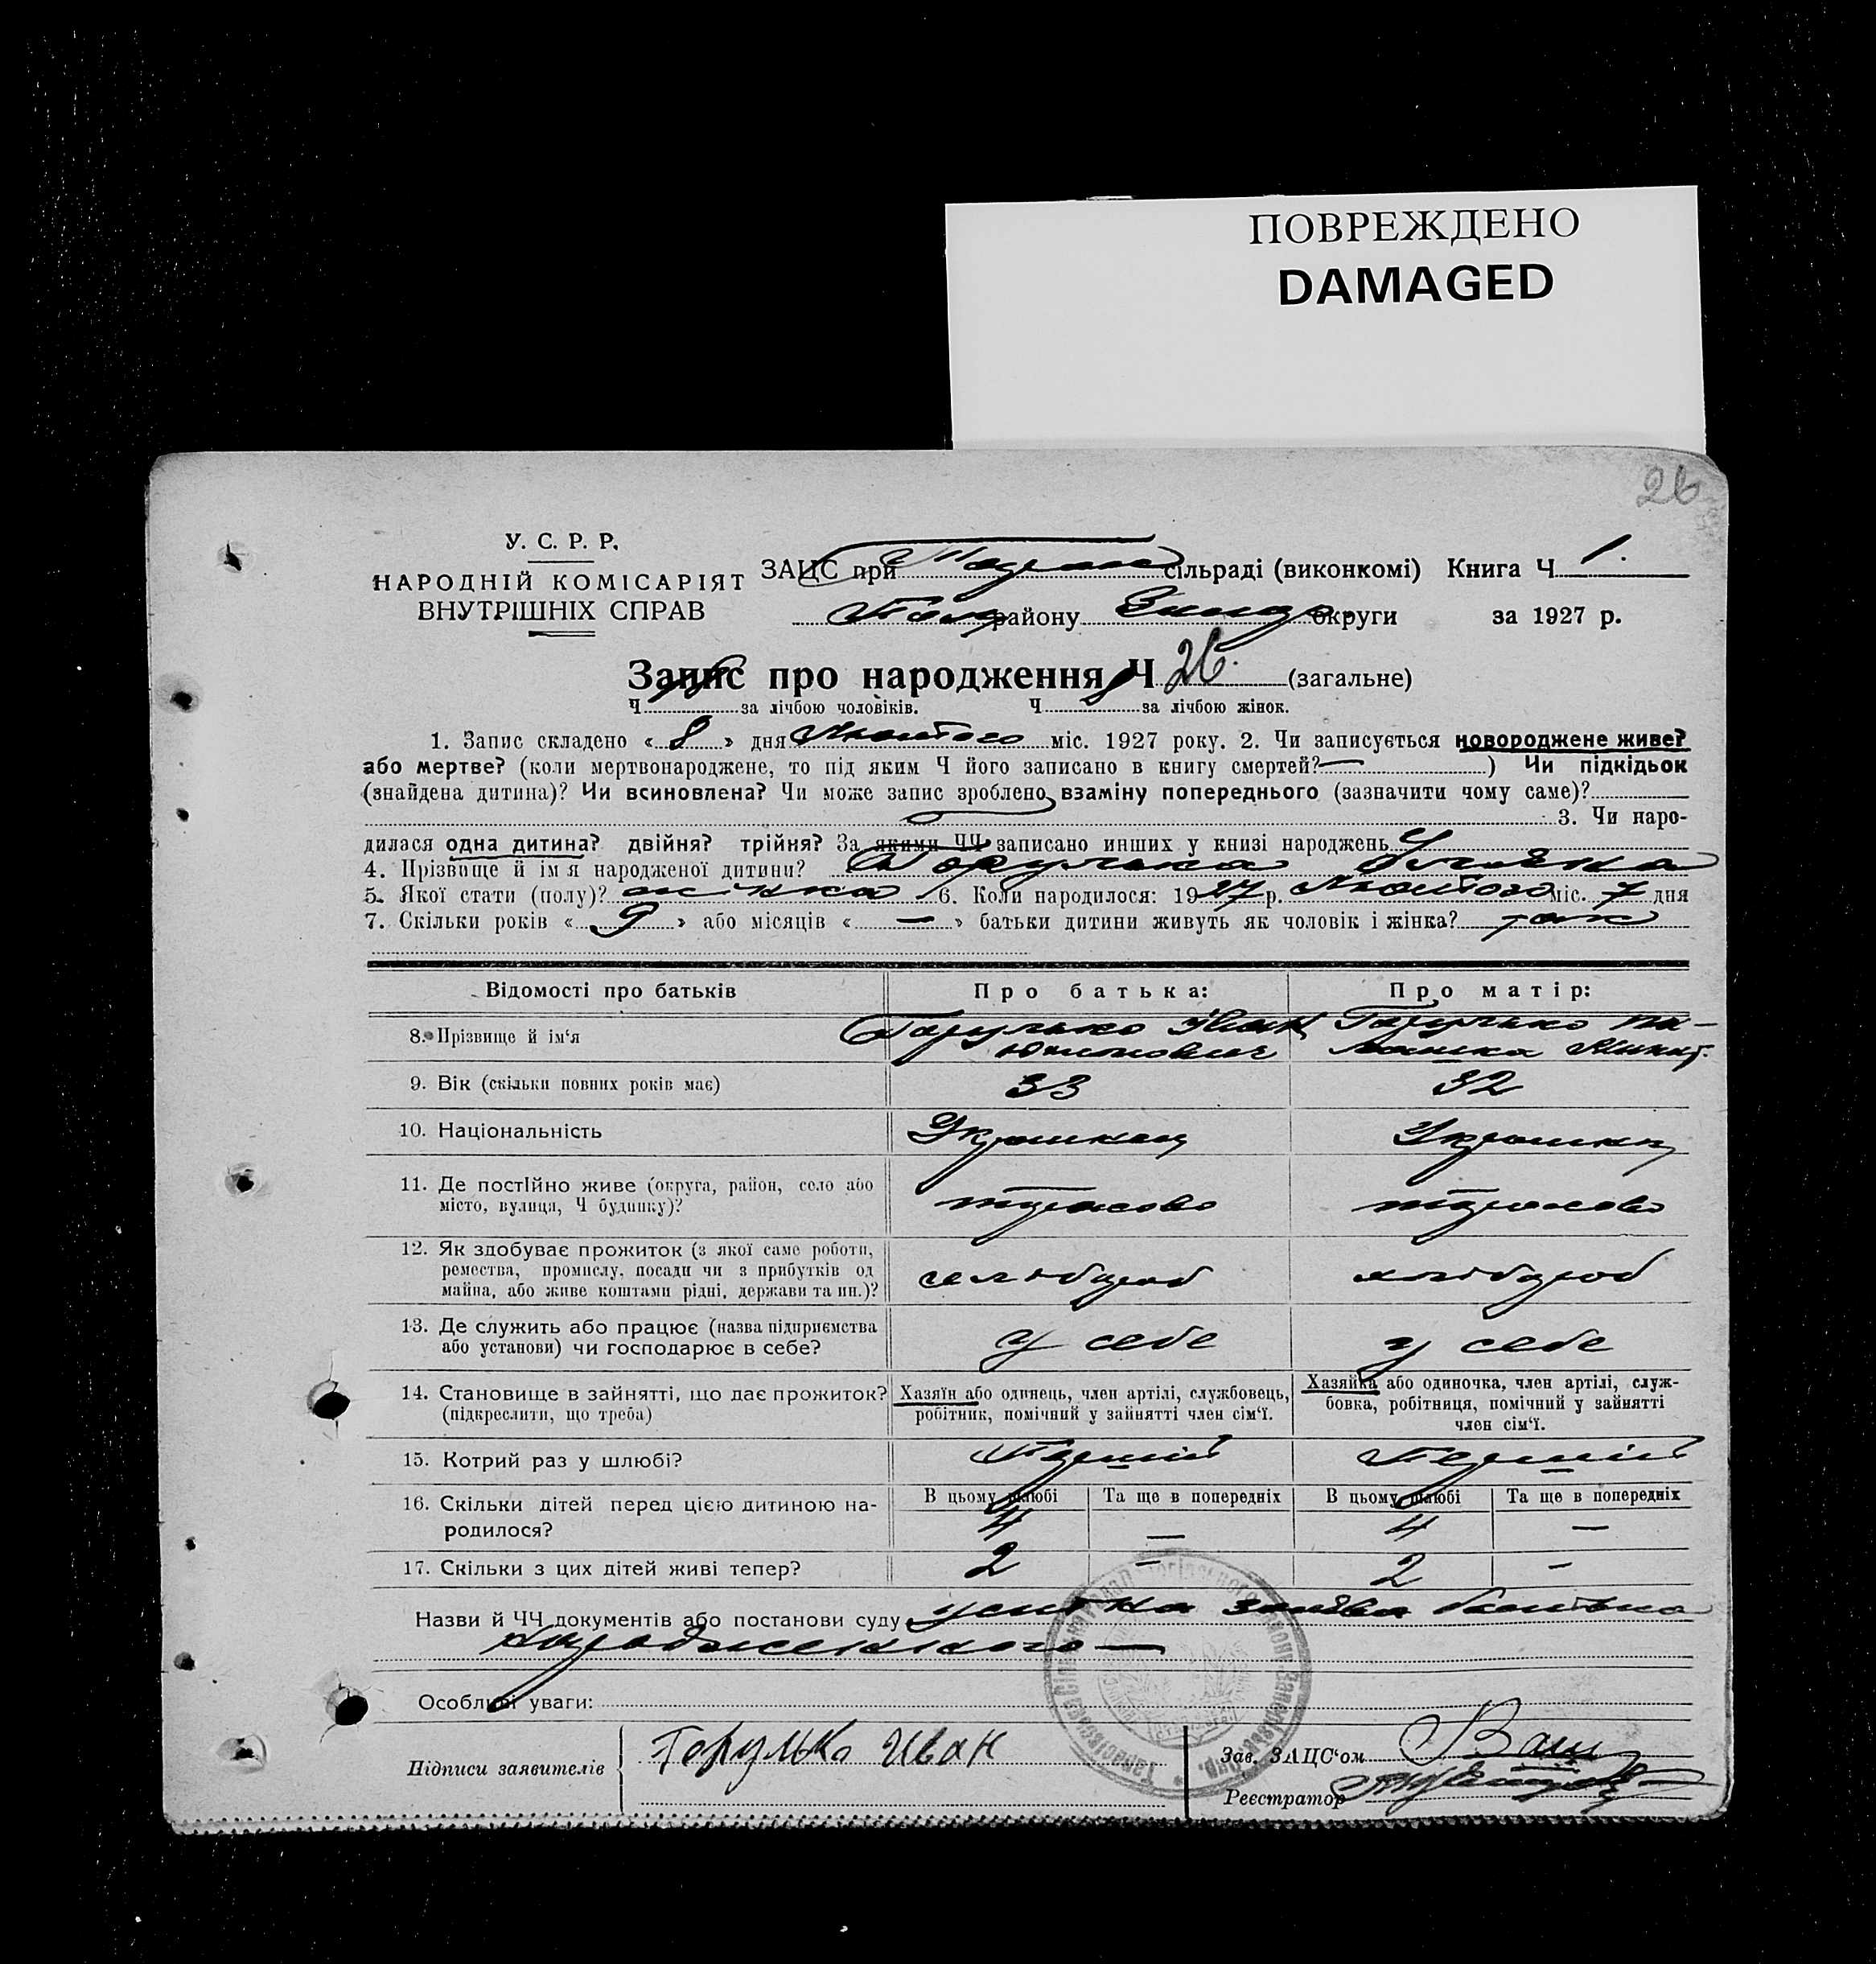 ПОВРЕЖДЕНО
DAMAGED
26
У. С. Р. Р.
НАРОДНІЙ КОМІСАРІЯТ
ВНУТРІШНІХ СПРАВ
ЗАЦС при сільраді (виконкомі) Книга Ч 1.
району округи за 1927 р.
Запис про народження Ч 26. (загальне)
Ч за лічбою чоловіків. Ч за лічбою жінок.
1. Запис складено « 8 » дня Лютого міс. 1927 року. 2. Чи записується новороджене живе?
або мертве? (коли мертвонароджене, то під яким Ч його записано в книгу смертей? — ) Чи підкідьок
(знайдена дитина)? Чи всиновлена? Чи може запис зроблено взаміну попереднього (зазначити чому саме)?
3. Чи наро-
дилася одна дитина? двійня? трійня? За якими ЧЧ записано инших у книзі народжень
4. Прізвище й ім'я народженої дитини? Горулька
5. Якої стати (полу)? жінка 6. Коли народилося: 1927 р. Лютого міс. 7 дня
7. Скільки років « 9 » або місяців « — » батьки дитини живуть як чоловік і жінка? так
Відомості про батьків Про батька: Про матір:
8. Прізвище й ім'я Горулько Іван Горулько Па-
лашка Микит.
9. Вік (скільки повних років має) 33 32
10. Національність Українец Українка
11. Де постійно живе (округа, район, село або
місто, вулиця, Ч будинку)? Тарасово Тарасово
12. Як здобуває прожиток (з якої саме роботи,
ремества, промислу, посади чи з прибутків од
майна, або живе коштами рідні, держави та ин.)? хлібороб хлібороб
13. Де служить або працює (назва підприємства
або установи) чи господарює в себе? у себе у себе
14. Становище в зайнятті, що дає прожиток?
(підкреслити, що треба)
Хазяїн або одинець, член артілі, службовець,
робітник, помічний у зайнятті член сім'ї.
Хазяйка або одиночка, член артілі, служ-
бовка, робітниця, помічний у зайнятті
член сім'ї.
15. Котрий раз у шлюбі? Перший Перший
В цьому шлюбі Та ще в попередніх В цьому шлюбі Та ще в попередніх
16. Скільки дітей перед цією дитиною на-
родилося? 4 — 4 —
17. Скільки з цих дітей живі тепер? 2 — 2 —
Назви й ЧЧ документів або постанови суду усна заява батька
народженного —
Особливі уваги:
Підписи заявителів Горулько Иван
Зав. ЗАЦС'ом
Реєстратор